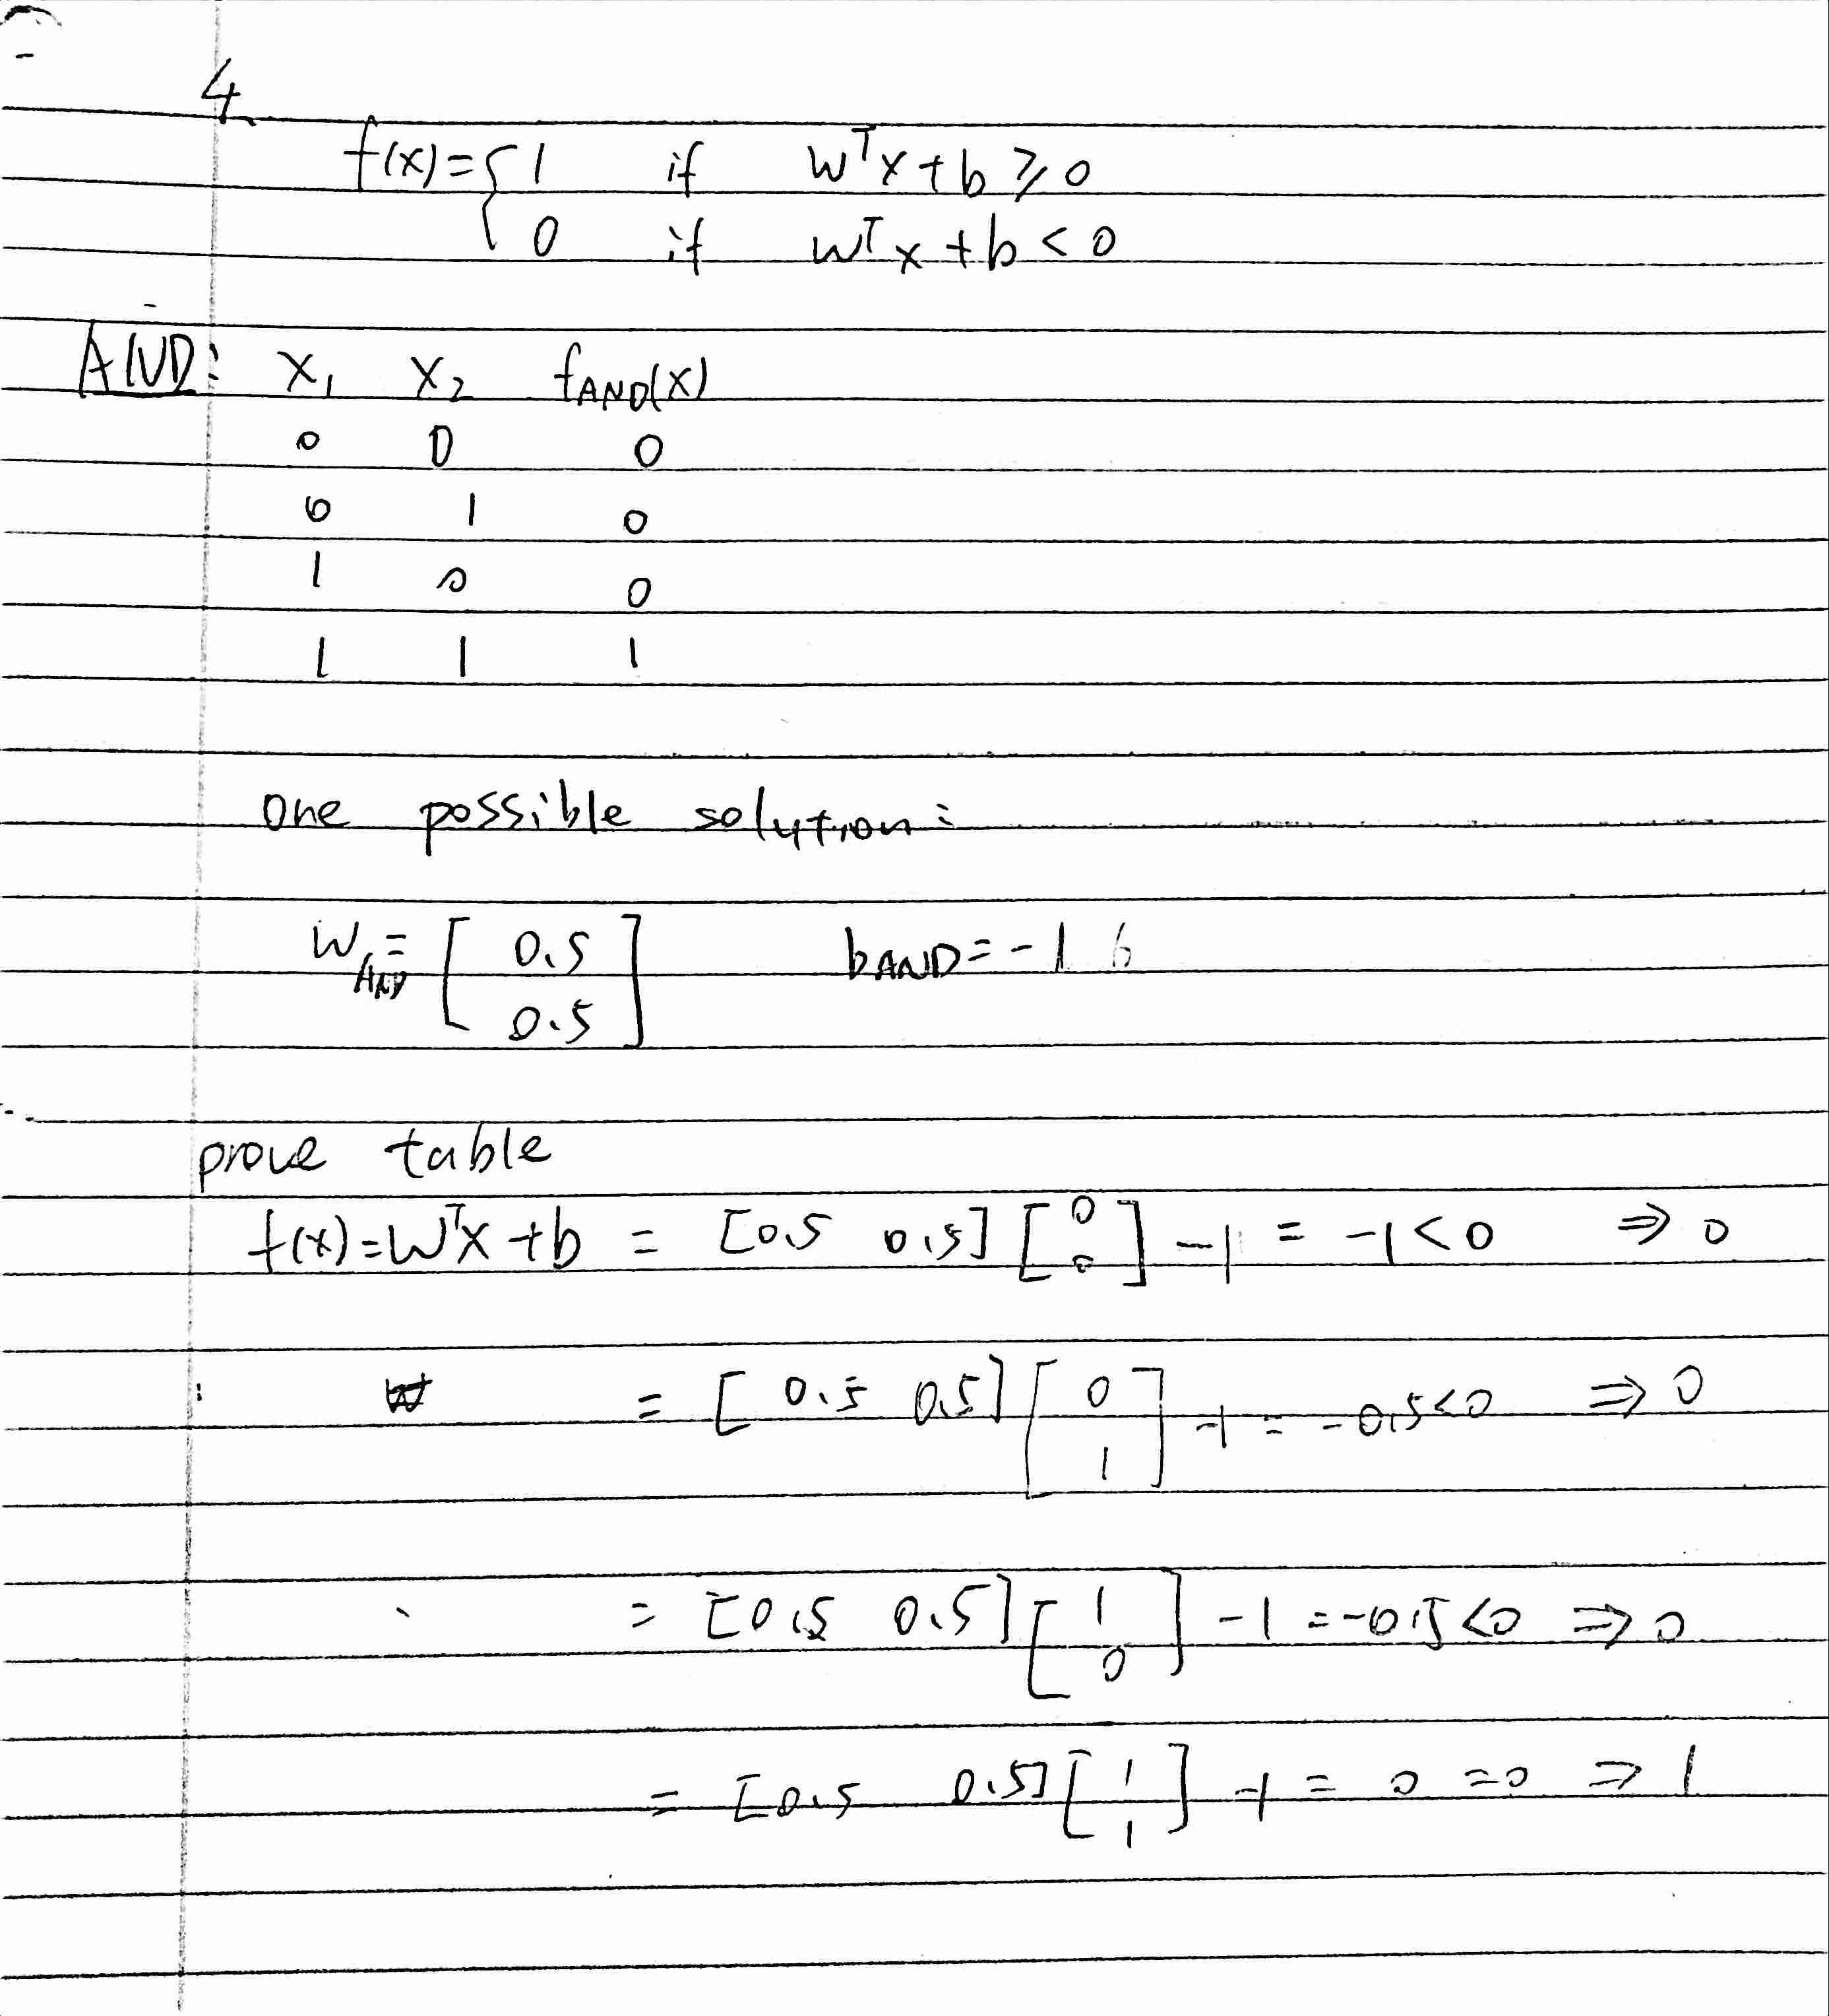 4.
f(x) = { 1 if wᵀx + b ⩾ 0
0 if wᵀx + b < 0
AND: x₁ x₂ fAND(x)
0 0 0
0 1 0
1 0 0
1 1 1
one possible solution:
wAND = [ 0.5 0.5 ] bAND = -1
prove table
f(x) = wᵀx + b = [0.5 0.5] [ 0 0 ] - 1 = -1 < 0 ⇒ 0
= [ 0.5 0.5] [ 0 1 ] - 1 = -0.5 < 0 ⇒ 0
= [0.5 0.5] [ 1 0 ] - 1 = -0.5 < 0 ⇒ 0
= [0.5 0.5] [ 1 1 ] - 1 = 0 = 0 ⇒ 1